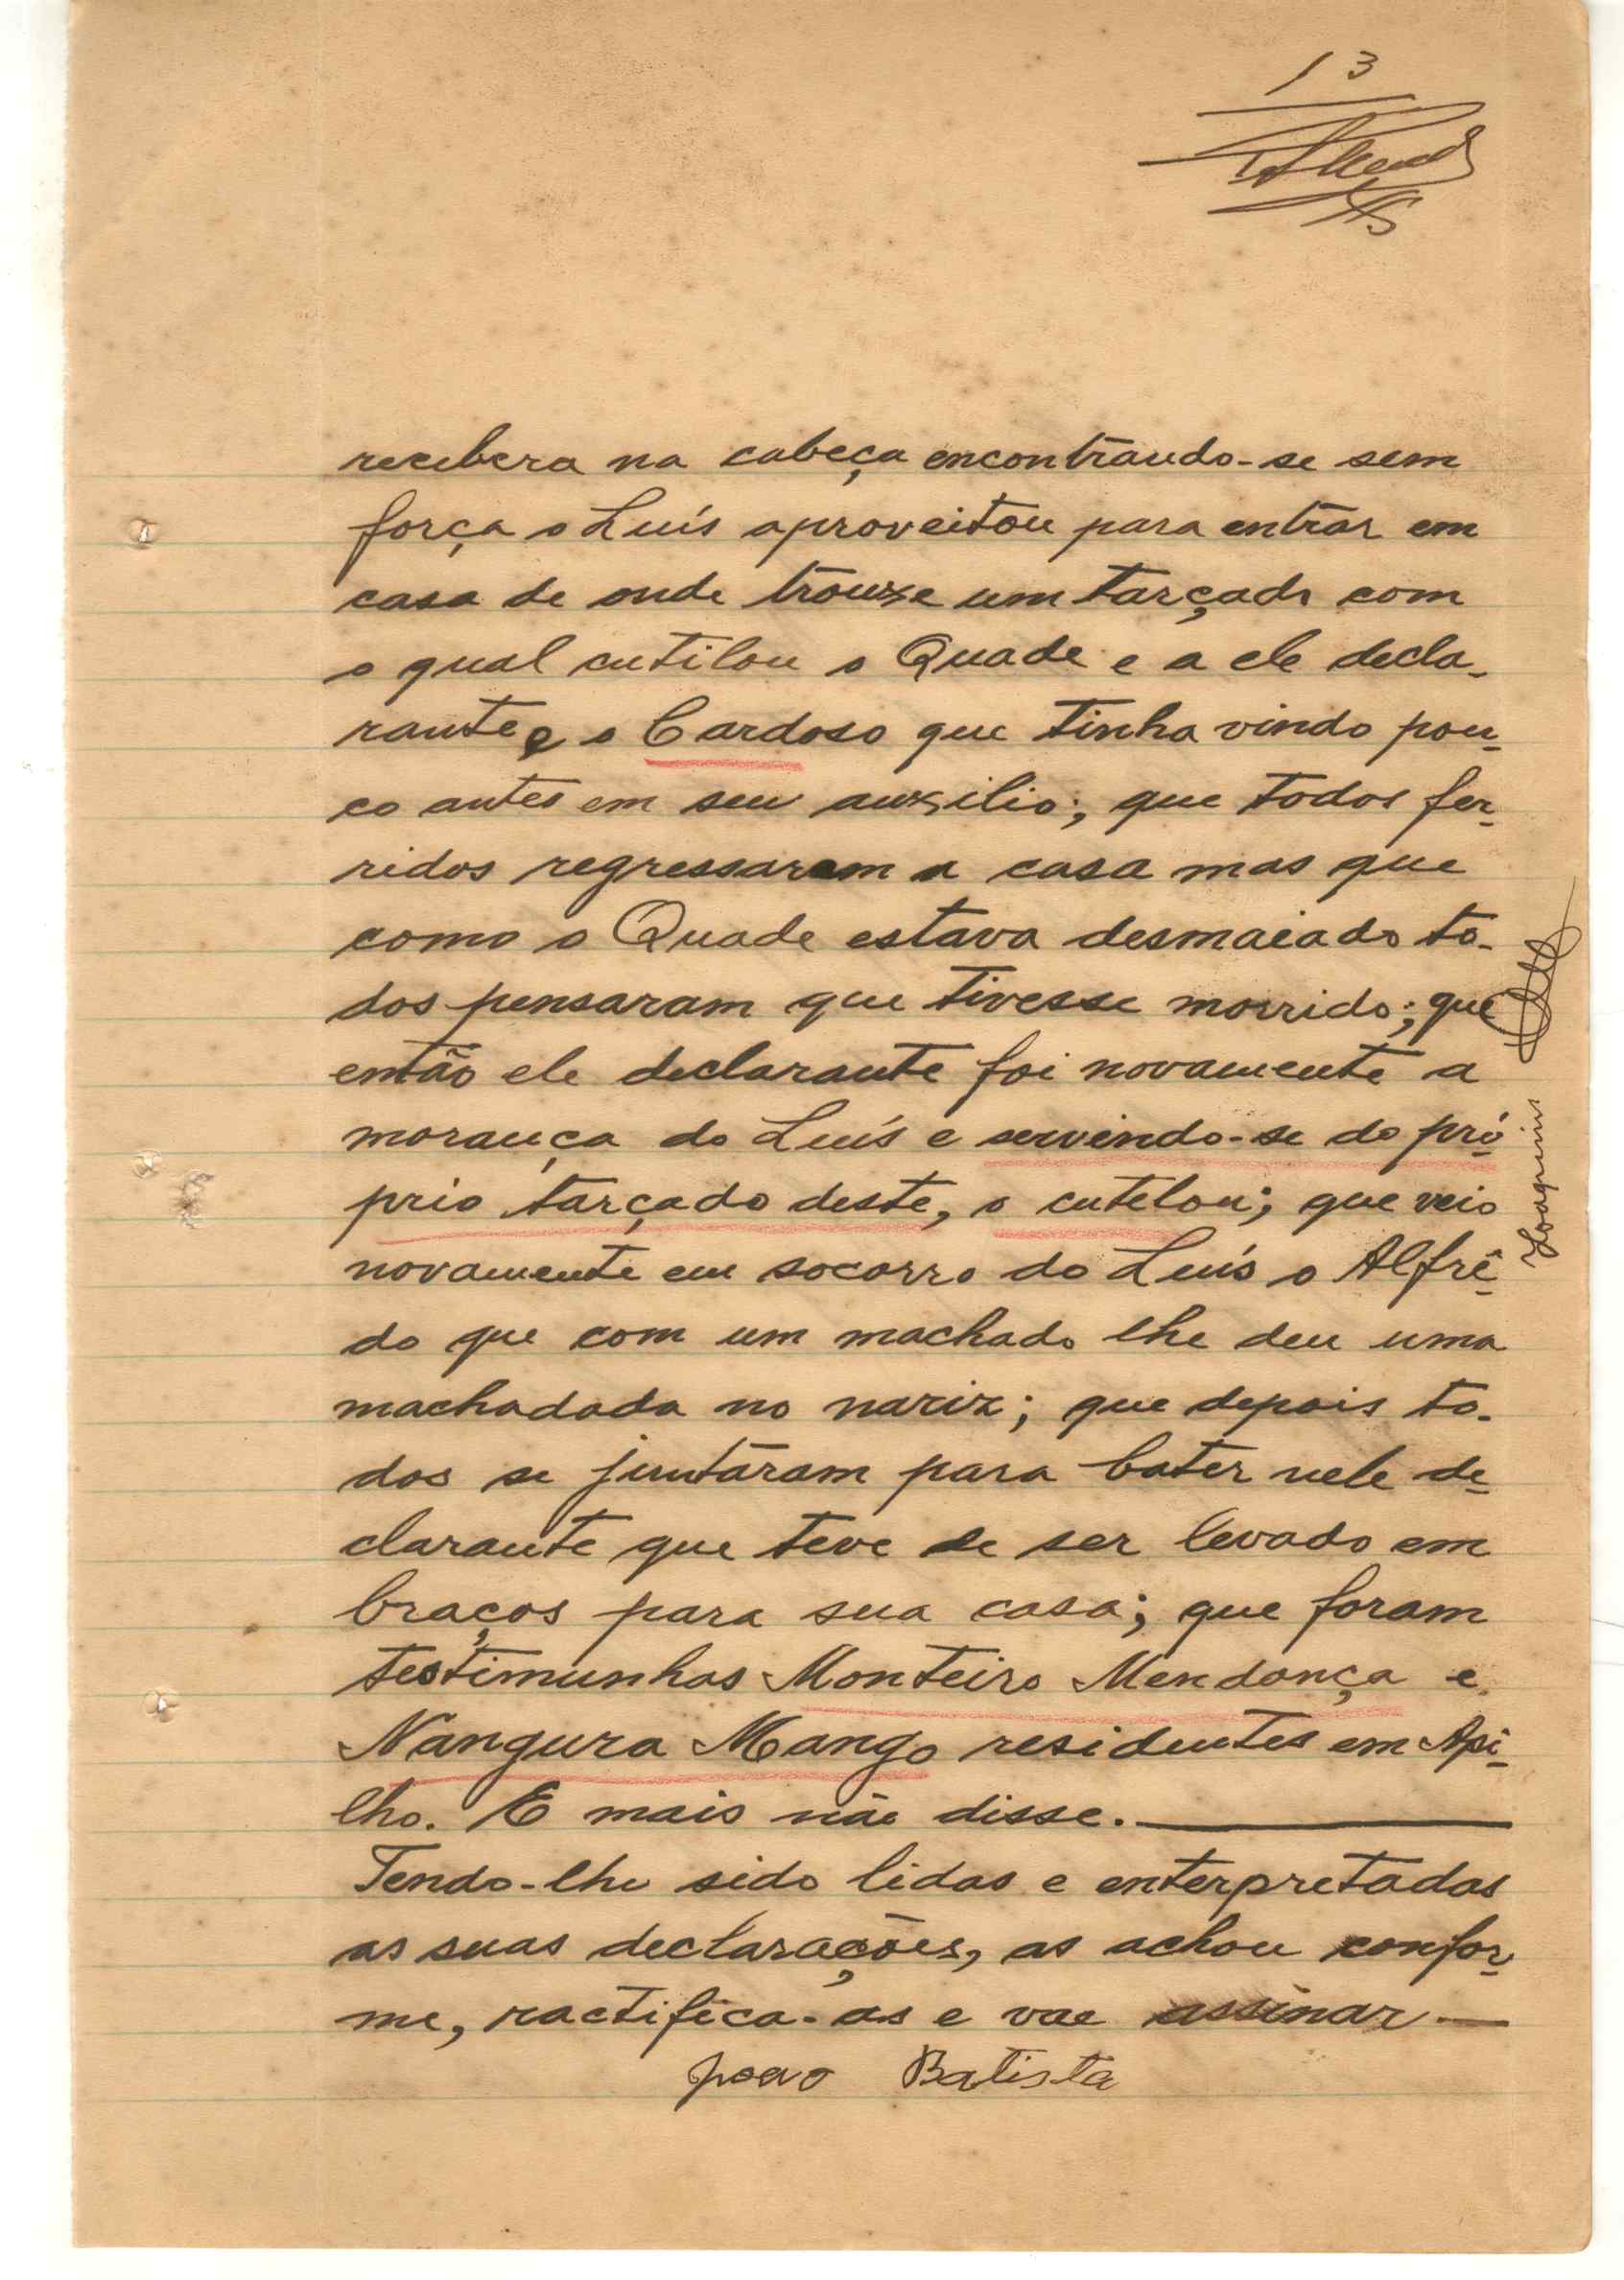 13
recebera na cabeça encontrando-se sem
força o Luís aproveitou para entrar em
casa de onde trouxe um tarçado com
o qual cutilou o Quade e a ele decla-
rante e o Cardoso que tinha vindo pou-
co antes em seu auxilio; que todos fer-
ridos regressaram a casa mas que
como o Quade estava desmaiado to-
dos pensaram que tivesse morrido; que
então ele declarante foi novamente a
morança do Luís e servindo-se do pró-
prio tarçado deste, o cutelou; que veio
novamente em socorro do Luís o Alfrê-
do que com um machado lhe deu uma
machadada no nariz; que depois to-
dos se juntáram para bater nele de-
clarante que teve de ser levado em
braços para sua casa; que foram
testimunhas Monteiro Mendonça e
Nangura Mango residentes em Api-
lho. E mais não disse.
Tendo-lhe sido lidas e enterpretadas
as suas declarações, as achou confor-
me, ractifica-as e vae assinar —
Joao Batista
Joaquim